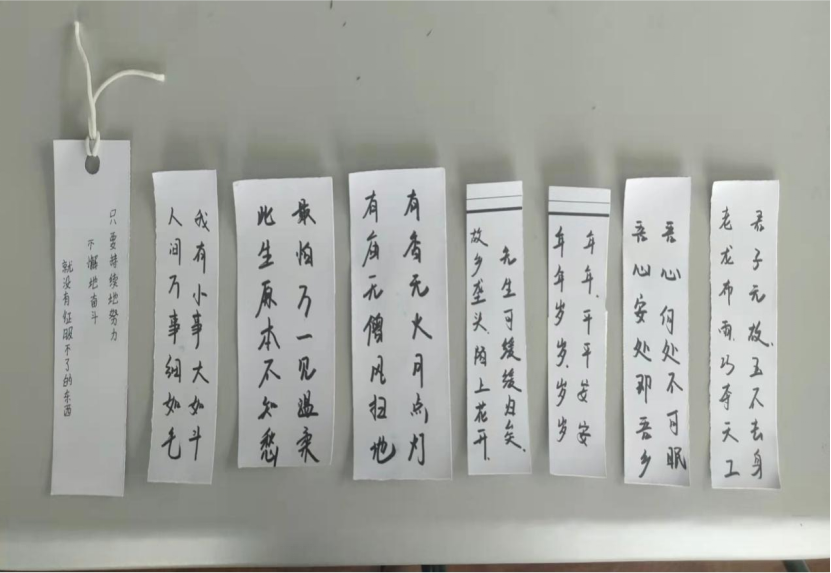 只要持续地努力
不懈地奋斗
就没有征服不了的东西
我有小事大如斗
人间万事细如毛
最怕万一见温柔
此生原本不知愁
有香无火月点灯
有庙无僧风扫地
先生可缓缓归矣.
故乡垄头,陌上花开.
年年,平平安安
年年岁岁,岁岁
吾心何处不可眠
吾心安处即吾乡
君子无故,玉不去身
老龙布雨,巧夺天工